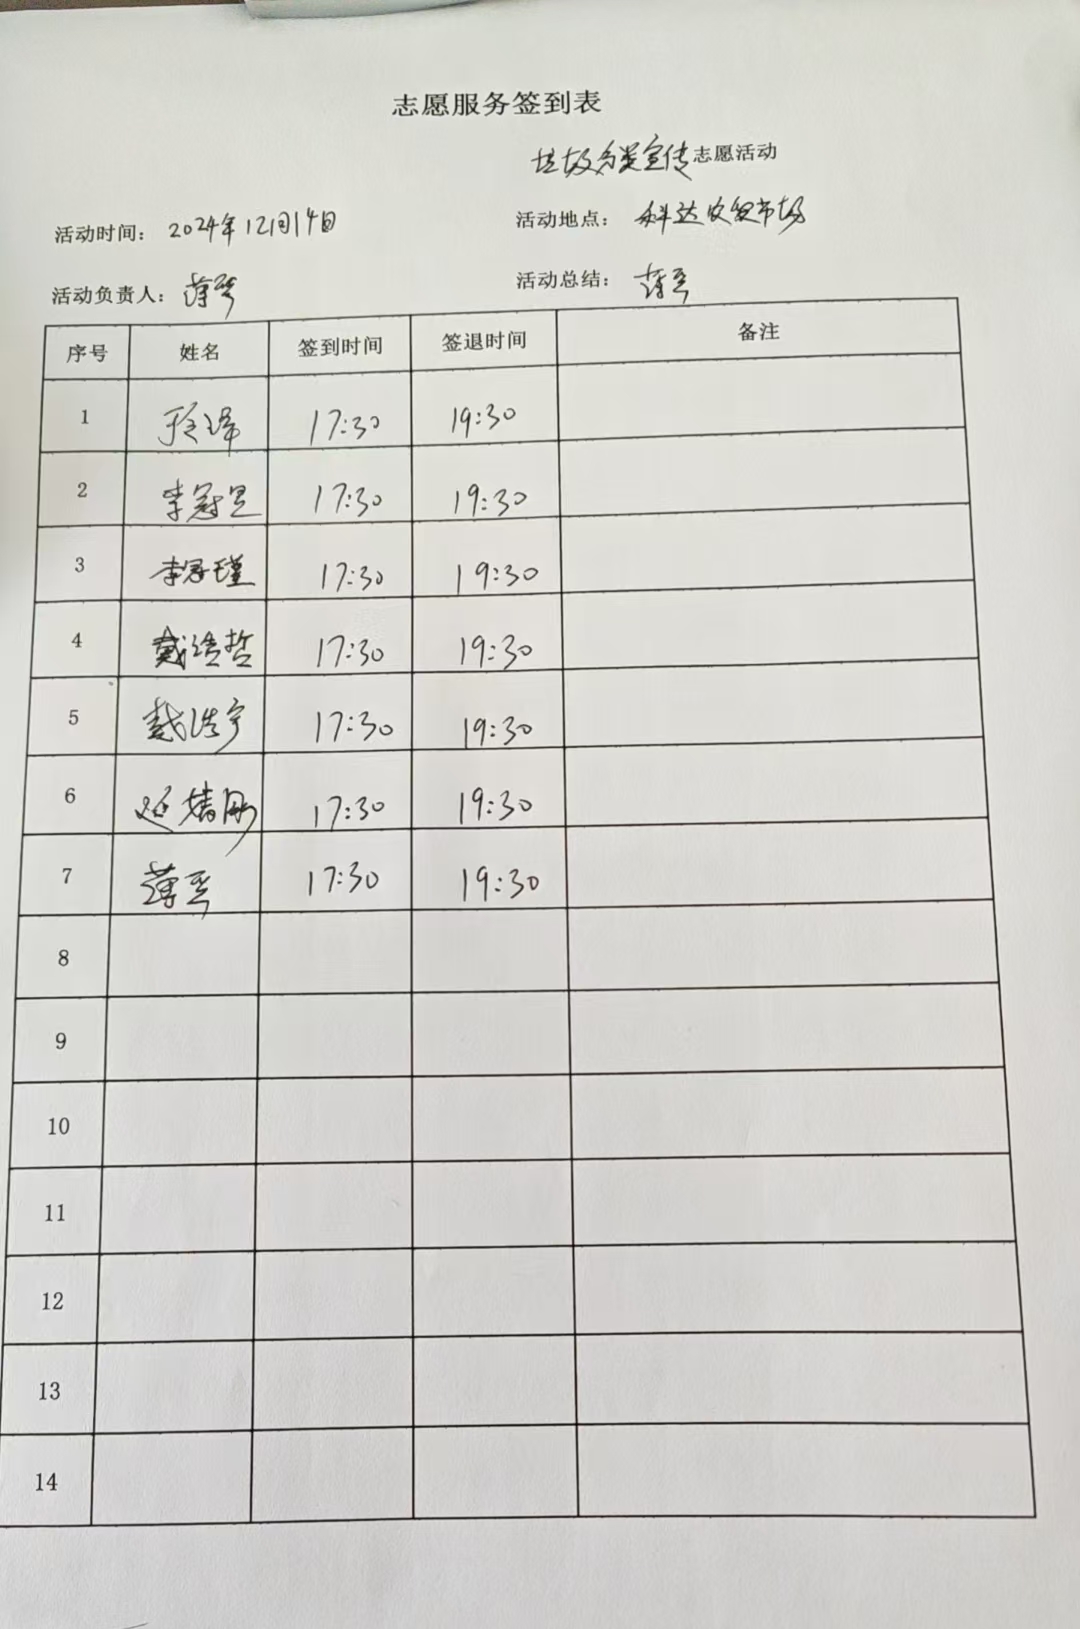 志愿服务签到表
垃圾分类宣传志愿活动
活动时间： 2024年12月14日 活动地点： 科达农贸市场
活动负责人： 活动总结：
序号 姓名 签到时间 签退时间 备注
1 17:30 19:30
2 李冠 17:30 19:30
3 李 瑾 17:30 19:30
4 戴浩哲 17:30 19:30
5 戴浩宇 17:30 19:30
6 延婧彤 17:30 19:30
7 17:30 19:30
8
9
10
11
12
13
14